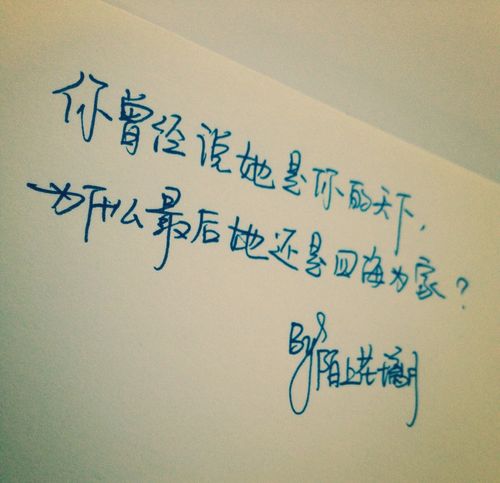 你曾经说她是你的天下，
为什么最后她还是四海为家？
By 陌上花